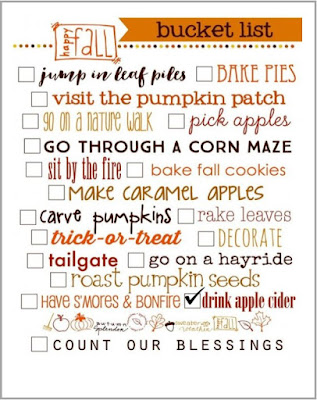 happy fall bucket list
jump in leaf piles BAKE PIES
visit the pumpkin patch
go on a nature walk pick apples
GO THROUGH A CORN MAZE
sit by the fire bake fall cookies
MAKE CARAMEL APPLES
carve pumpkins rake leaves
trick-or-treat DECORATE
tailgate go on a hayride
roast pumpkin seeds
HAVE S'MORES & BONFIRE drink apple cider
autumn splendor sweater weather fall
COUNT OUR BLESSINGS